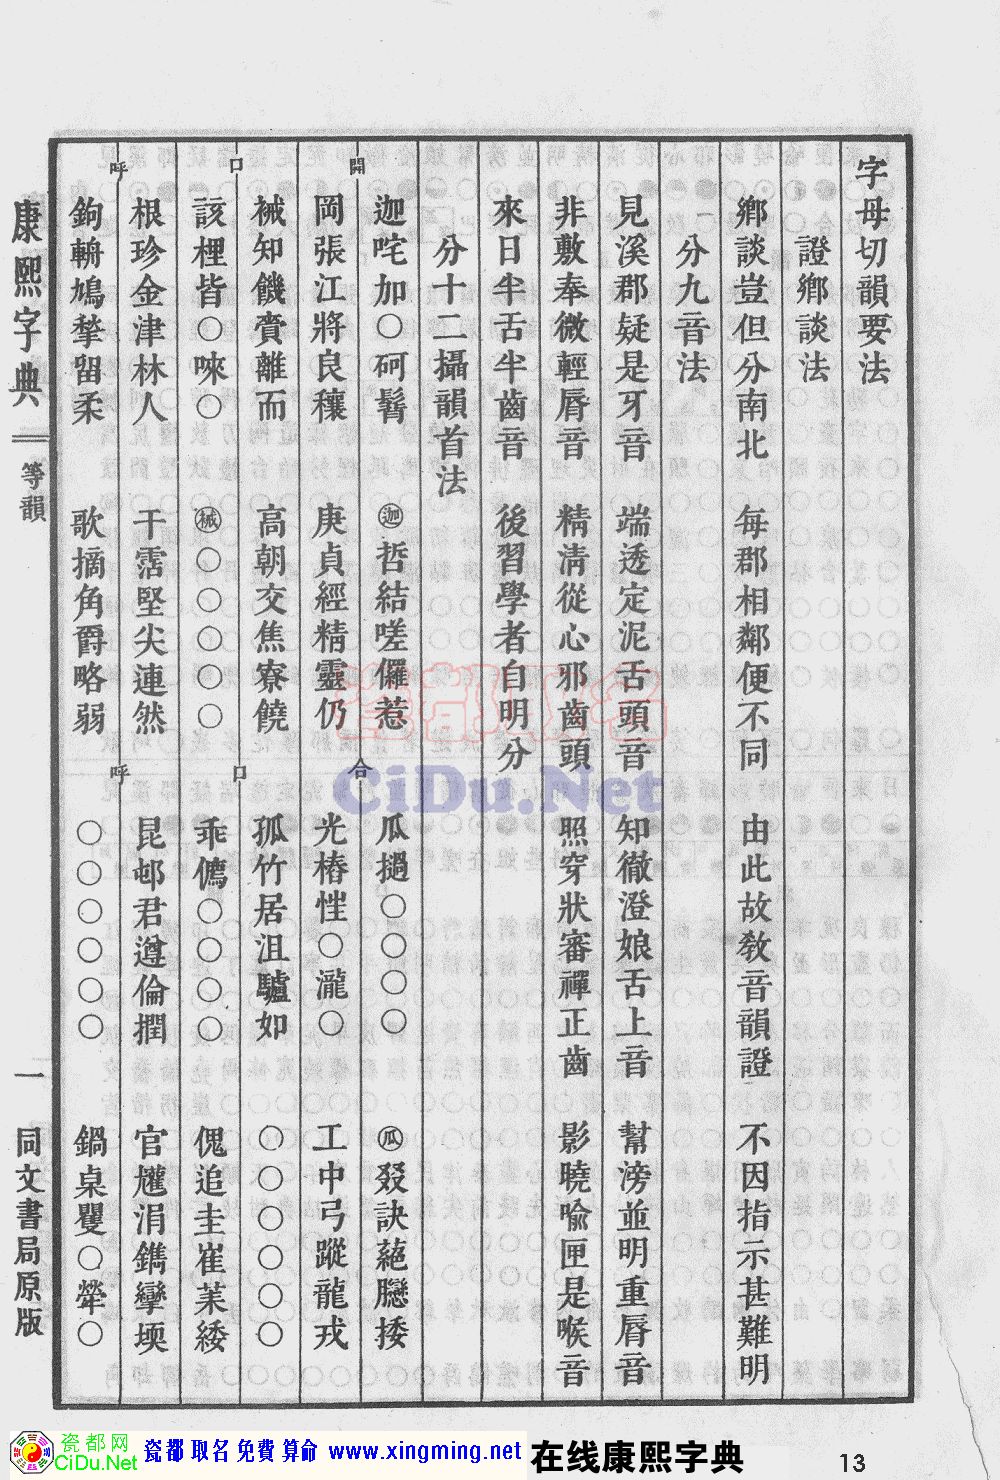 字母切韻要法
證鄉談法
鄉談豈但分南北　每郡相鄰便不同　由此故敎音韻證　不因指示甚難明
分九音法
見溪郡疑是牙音　端透定泥舌頭音　知徹澄娘舌上音　幫滂並明重脣音
非敷奉微輕脣音　精清從心邪齒頭　照穿狀審禪正齒　影曉喩匣是喉音
來日半舌半齒音　後習學者自明分
分十二攝韻首法
開　合
迦咤加○砢䯝　㊀迦哲結嗟儸惹　瓜撾○○○○　瓜叕訣蕝臒捼
岡張江將良穰　庚貞經精靈仍　光樁性○瀧○　工中弓蹤龍戎
祴知饑賫離而　高朝交焦寮饒　孤竹居沮驢如　○○○○○○
口　口
該桯皆○唻○　械○○○○○　乖㒟○○○○　傀追圭崔䒩緌
根珍金津林人　干霑堅尖連然　昆邨君遵倫撋　官尵涓鐫攣堧
呼　呼
鉤輈鳩揫畱柔　歌摘角爵略弱　○○○○○○　鍋桌矍○犖○
康熙字典　等韻　一　同文書局原版
瓷都取名
CiDu.Net
瓷都网
CiDu.Net
瓷都取名免費算命 www.xingming.net
在线康熙字典
13